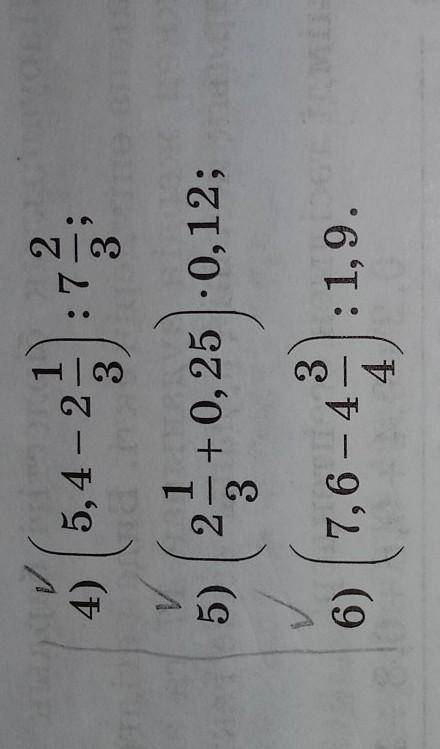 4) (5,4 − 2 1/3) : 7 2/3;
5) (2 1/3 + 0,25) · 0,12;
6) (7,6 − 4 3/4) : 1,9.